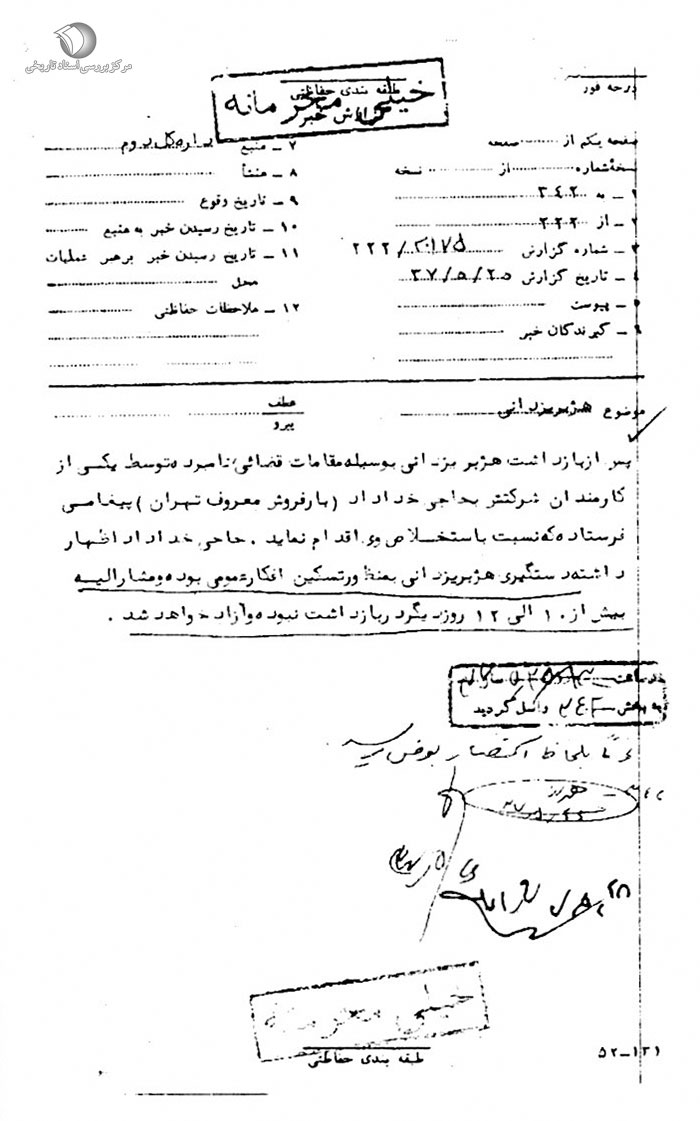 مرکز بررسی اسناد تاریخی
درجه فور
طبقه بندی حفاظتی
خیلی محرمانه
گزارش خبر
صفحه یکم از صفحه
نسخه شماره از نسخه
۱ – به ۳۴۲
۲ – از ۲۲۲
۳ – شماره گزارش
۴ – تاریخ گزارش ۳۷/۵/۲۵
۵ – پیوست
۶ – گیرندگان خبر
۷ – منبع
۸ – منشأ
۹ – تاریخ وقوع
۱۰ – تاریخ رسیدن خبر به منبع
۱۱ – تاریخ رسیدن خبر برهبر عملیات
محل
۱۲ – ملاحظات حفاظتی
موضوع هژبریزدانی
عطف
پیرو
پس ازبازداشت هژبر یزدانی بوسیله مقامات قضائی نامبرده توسط یکی از
کارمندان شرکتش بحاجی خداداد (بارفروش معروف تهران) پیغامی
فرستاده که نسبت باستخلاص وی اقدام نماید . حاجی خداداد اظهار
داشته دستگیری هژبریزدانی بمنظور تسکین افکار عمومی بوده و مشارالیه
بیش از ۱۰ الی ۱۲ روز دیگر در بازداشت نبوده و آزاد خواهد شد .
به بخش ۳۴۲ واصل گردید
خیلی محرمانه
طبقه بندی حفاظتی
۵۲–۱۳۱